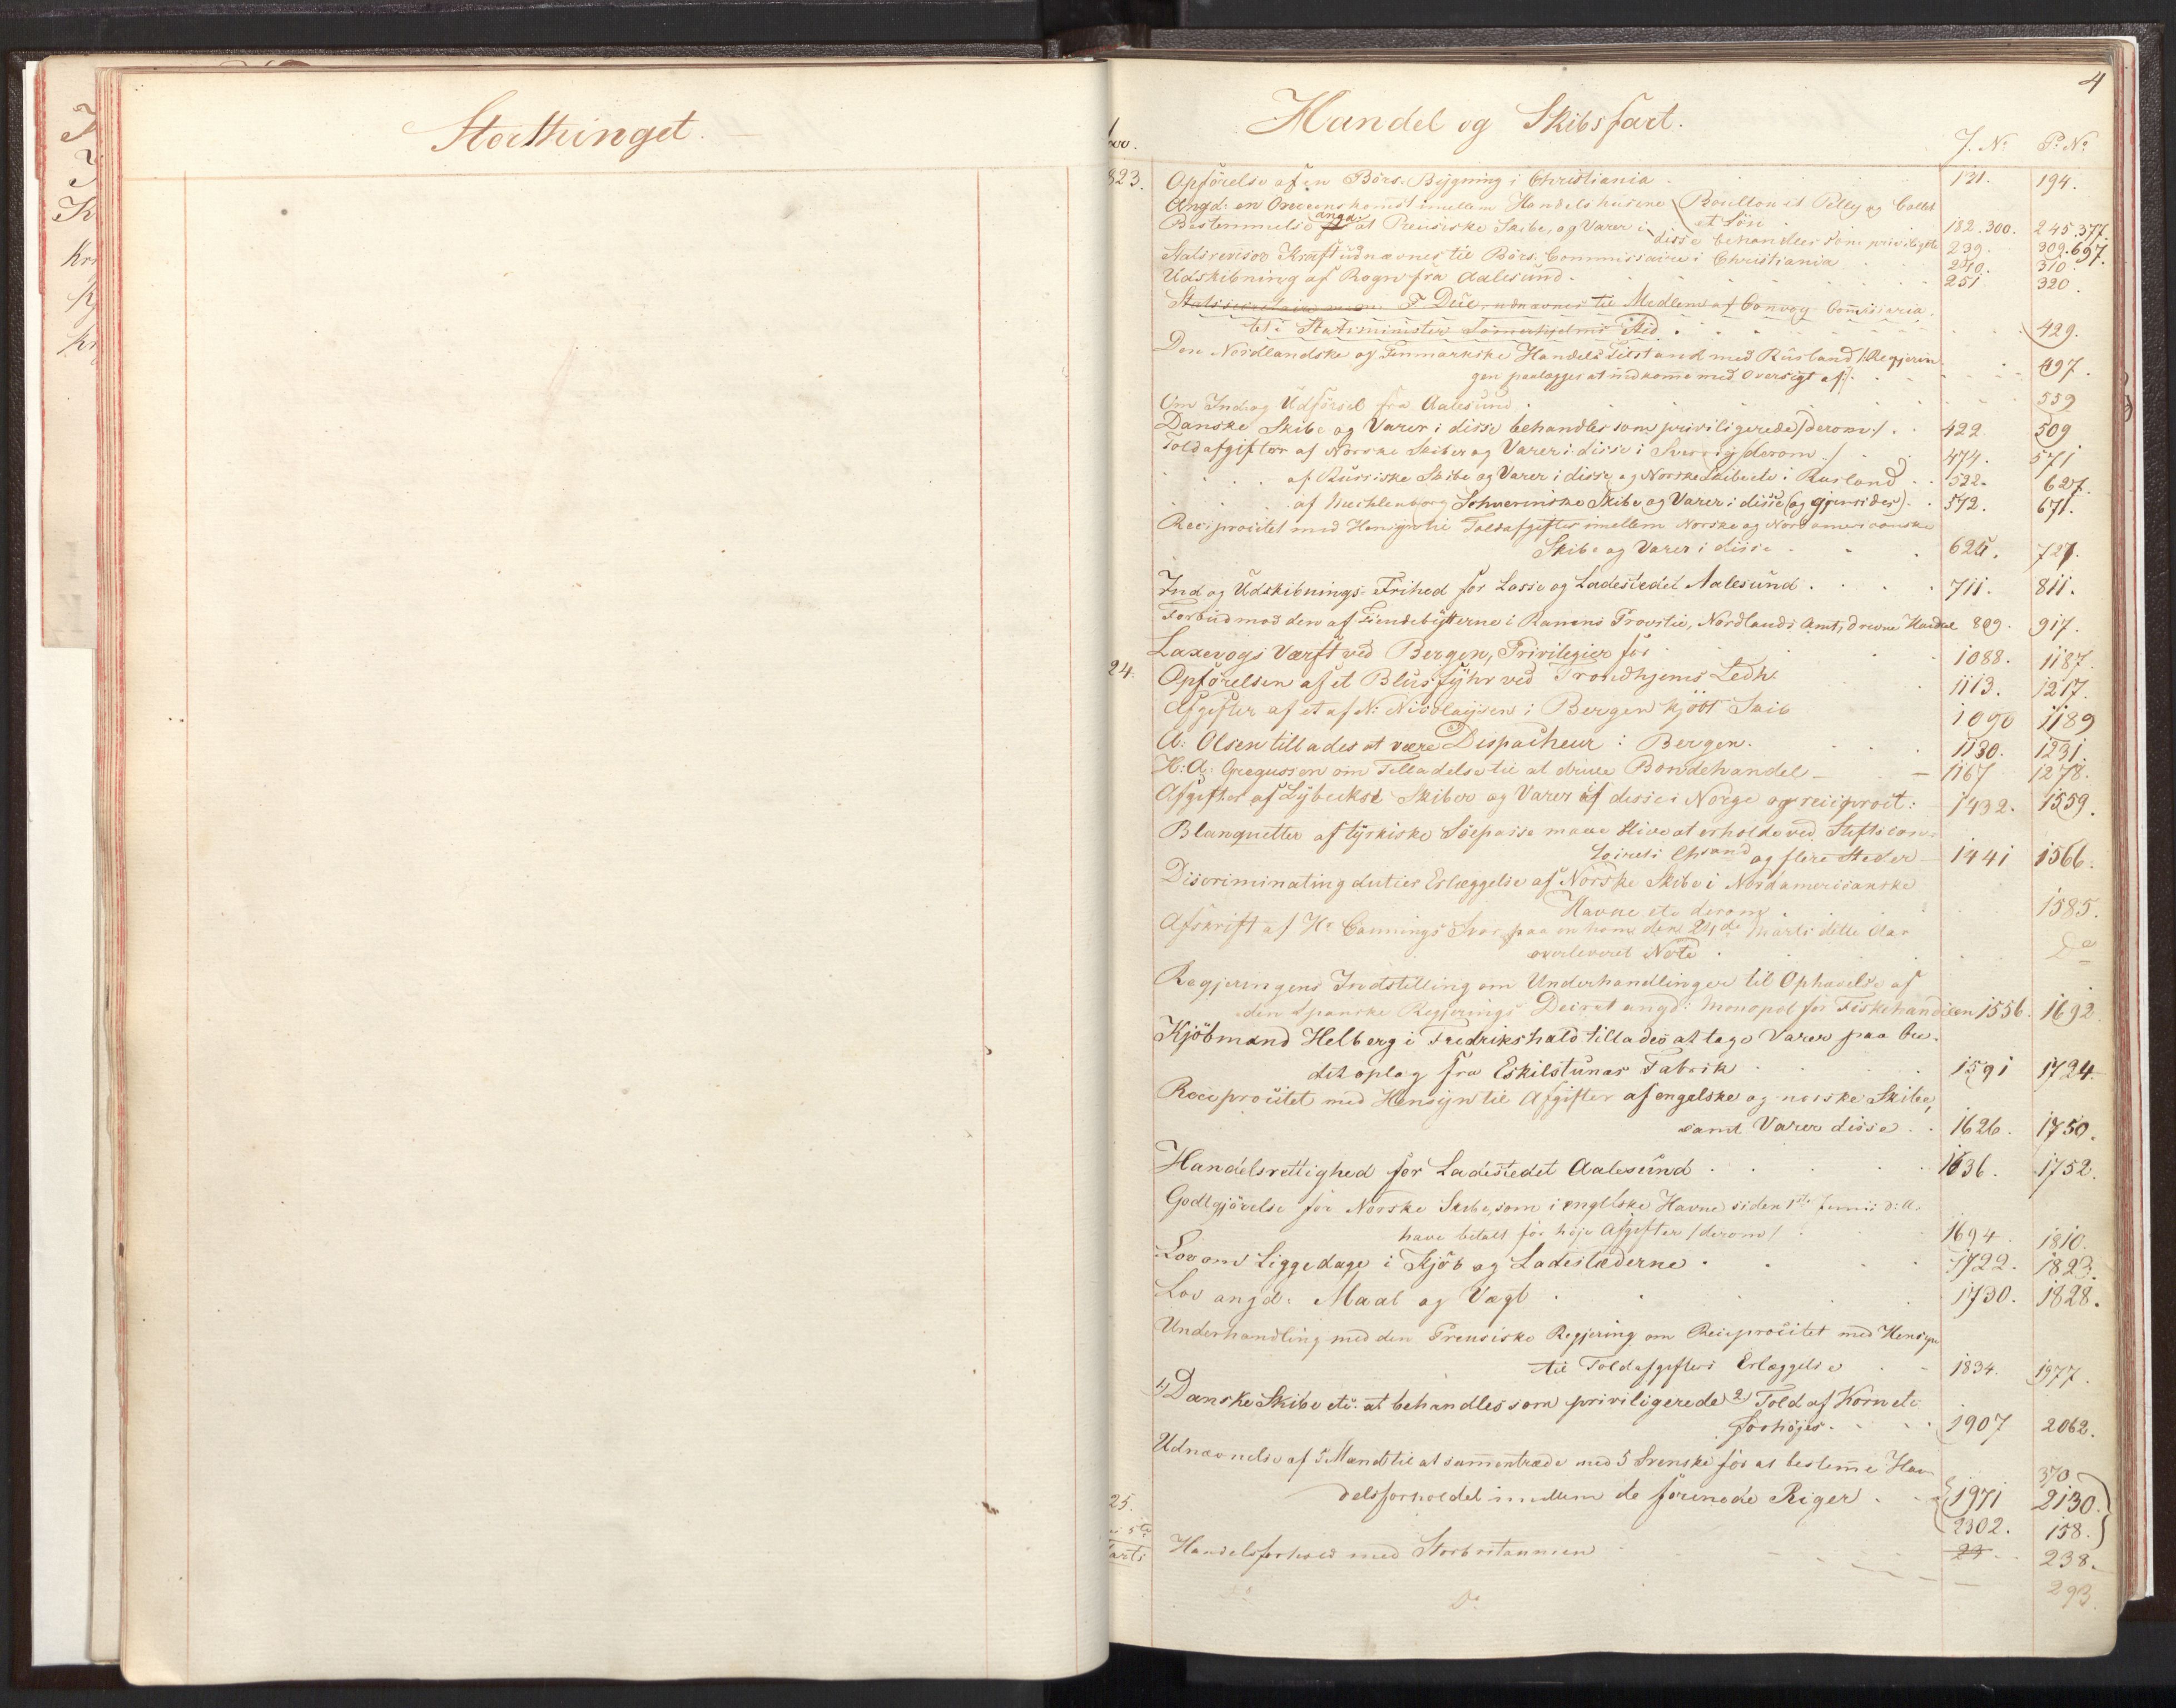 Storthinget.
4
Handel og Skibsfart.
J. No P. No
823. Opförelse af en Börs-Bygning i Christiania 131. 194.
Angd: en Overeenskomst imellem Handelshusene Boullon et Pelly og
et Sön 182.300. 245.377.
Bestemmelse angd. at Preusiske Skibe, og Varer i disse behandles som priviligerede 239. 309.697.
Kraft udnævnes til Börs-Commissair i Christiania 240. 310.
Udskibning af Rogn fra Aalesund 251 320.
Statssecretair Due, udnævnes til Medlem af Convoy Commissaria
tet i Statsminister Sted 429.
Den Nordlandske og Finmarkske Handels Tilstand med Rusland /: Regjerin
gen paalægges at indkomme med Oversigt af :/ 497.
Om Ind og Udförsel fra Aalesund 559
Danske Skibe og Varer i disse behandles som priviligerede /derom:/ 422. 509
Toldafgifter af Norske Skibe og Varer i disse i Sverrig /derom:/ 474. 571
af Russiske Skibe og Varer i disse og Norske Skibe etc i Rusland 522. 627.
af Mechlenborg Schwerinske Skibe og Varer i disse (og gjensides) 572. 671.
Reciprocitet med Hensyn til Toldafgifter imellem Norske og Nordamericanske
Skibe og Varer i disse 624. 727.
Ind og Udskibnings-Frihed for Losse og Ladestedet Aalesund 711. 811.
Forbud mod den af i Ranens Provstie, Nordlands Amt, drevne Handel 809. 917.
Laxevogs Værft ved Bergen, Privilegier for 1088. 1187.
24. Opförelsen af et Blusfyhr ved Trondhjems Ledh 1113. 1217.
Afgifter af et af N: Nicolaysen i Bergen kjöbt Skib 1090 1189
A: Olsen tillades at være Dispacheur i Bergen. 1130. 1231.
H: A: Gregussen om Tilladelse til at drive Bondehandel 1167 1278.
Afgifter af Lybeckske Skibe og Varer af disse i Norge og reciproit: 1432. 1559.
Blanquetter af tyrkiske Söepasse maae blive at erholde ved Stiftscon-
toiret i Chsand og flere Steder 1441 1566.
Discriminating duties Erlæggelse af Norske Skibe i Nordamericanske
Havne etc derom 1585.
Afskrift af Hr Cannings Svar paa en ham den 24de Marts dette Aar
overleveret Note Do
Regjeringens Indstilling om Underhandlinger til Ophævelse af
den Spanske Regjerings Decret angd: Monopol for Fiskehandelen 1556. 1692
Kjöbmand Helberg i Fredrikshald tillades at tage Varer paa Cre-
ditoplag fra Eskilstunas Fabrik 1591 1724.
Reciprocitet med Hensyn til Afgifter af engelske og norske Skibe,
samt Varer disse 1626. 1750.
Handelsrettighed for Ladestedet Aalesund 1636. 1752.
Godtgjörelse for Norske Skibe, som i engelske Havne siden 1ste Junii d: A:
have betalt for höje Afgifter /derom/ 1694. 1810.
Lov om Liggedage i Kjöb og Ladestæderne 1722. 1823.
Lov angd: Maal og Vægt 1730. 1828.
Underhandling med den Preusiske Regjering om Reciprocitet med Hensyn
til Toldafgifters Erlæggelse 1834. 1977.
1) Danske Skibe etc. at behandles som priviligerede 2) Told af Korn etc
forhöjes. 1907 2062.
Udnævnelse af 5 Mænd til at sammentræde med 5 Svenske for at bestemme Han-
370
25. delsforholdet imellem de forenede Riger 1971 2130.
2302. 158.
Handelsforhold med Storbritannien 23 238.
Do 293.